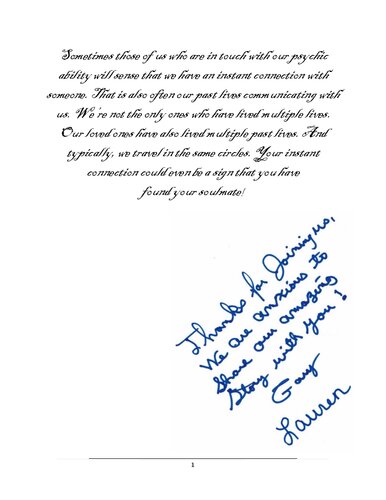 Sometimes those of us who are in touch with our psychic
ability will sense that we have an instant connection with
someone. That is also often our past lives communicating with
us. We're not the only ones who have lived multiple lives.
Our loved ones have also lived multiple past lives. And
typically, we travel in the same circles. Your instant
connection could even be a sign that you have
found your soulmate!
Thanks for Joining us,
We are anxious to
Share our amazing
Story with you!
Gary
Lauren
1